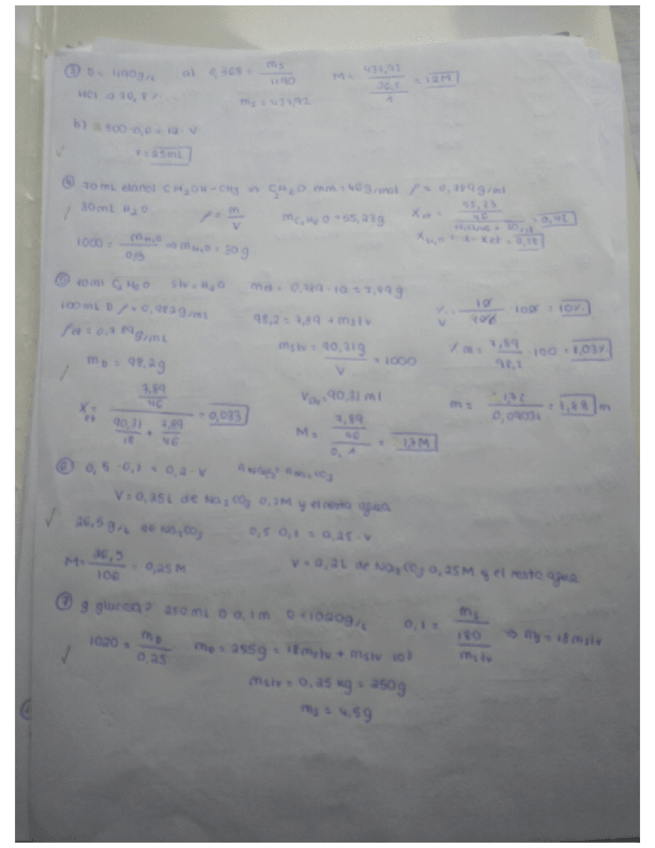 ③ D = 1190g/L a) 0,368 = ms/1190 M = (437,92/36,5)/1 = 12M
HCl → 36,8% ms = 437,92
b) 500·0,6 = 12·V
V = 25mL
④ 70mL etanol CH2OH-CH3 ⇒ C2H6O mm = 46g/mol ρ = 0,789g/ml
30mL H2O ρ = m/V mC2H6O = 55,23g
1000 = mH2O/0,03 ⇒ mH2O = 30g XH2O = 1 - Xet = 0,58
⑤ 10ml C2H6O slv = H2O met = 0,789·10 = 7,89g
100mL D ρ = 0,982g/ml 98,2 = 7,89 + mslv
ρet = 0,789g/mL mslv = 90,31g
mD = 98,2g /V = 1000
Xet = (7,89/46)/(90,31/18 + 7,89/46) = 0,033 Vslv 90,31ml
M = (7,89/46)/0,1 = 1,7M
⑥ 0,5·0,1 = 0,2·V
V = 0,25L de Na2CO3 0,2M y el resto agua
26,5g/L de Na2CO3 0,5·0,1 = 0,25·V
M = 26,5/106 = 0,25M V = 0,2L de Na2CO3 0,25M y el resto agua
⑦ g glucosa? 250mL D 0,1m D = 1020g/L 0,1 = (ms/180)/mslv ⇒ ms = 18mslv
1020 = mD/0,25 mD = 255g = 18mslv + mslv·10³
mslv = 0,25kg = 250g
ms = 4,5g